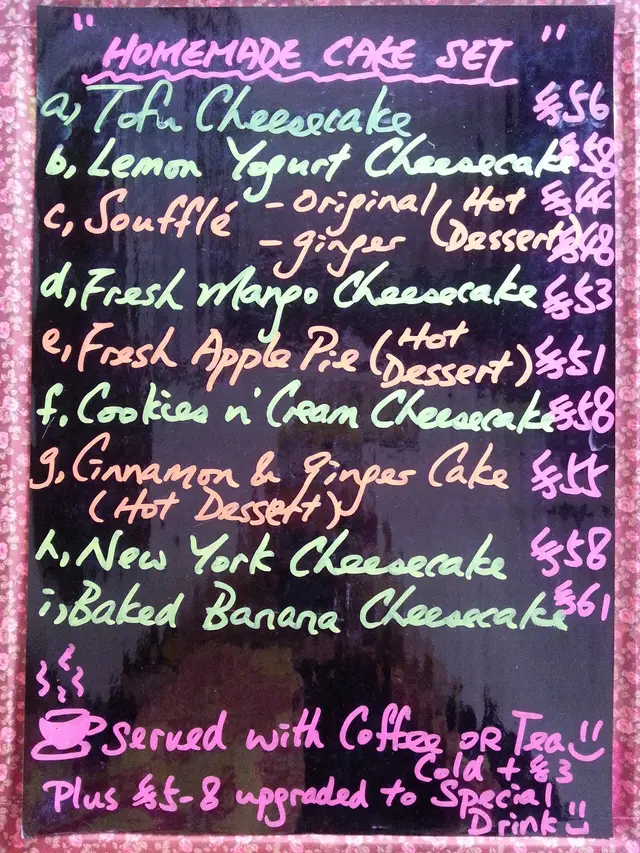 "HOMEMADE CAKE SET"
a, Tofu Cheesecake $56
b, Lemon Yogurt Cheesecake $58
c, Soufflé - original (Hot $44
- ginger Dessert) $48
d, Fresh Mango Cheesecake $53
e, Fresh Apple Pie (Hot Dessert) $51
f, Cookies n' Cream Cheesecake $58
g, Cinnamon & ginger Cake $55
(Hot Dessert)
h, New York Cheesecake $58
i, Baked Banana Cheesecake $61
served with Coffee OR Tea
Cold + $3
Plus $5-8 upgraded to Special
Drink